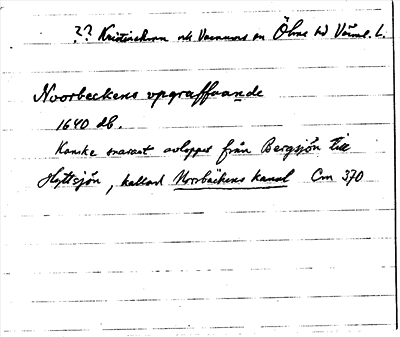 ?? Kristinehamn och Varnums sn Ölme hd Värml. L.
Noorbeckens vpgraffvande
1640 db.
Kanske snarast avloppet från Bergsjön till
Hyttsjön, kallad Norrbäckens kanal Cm 370